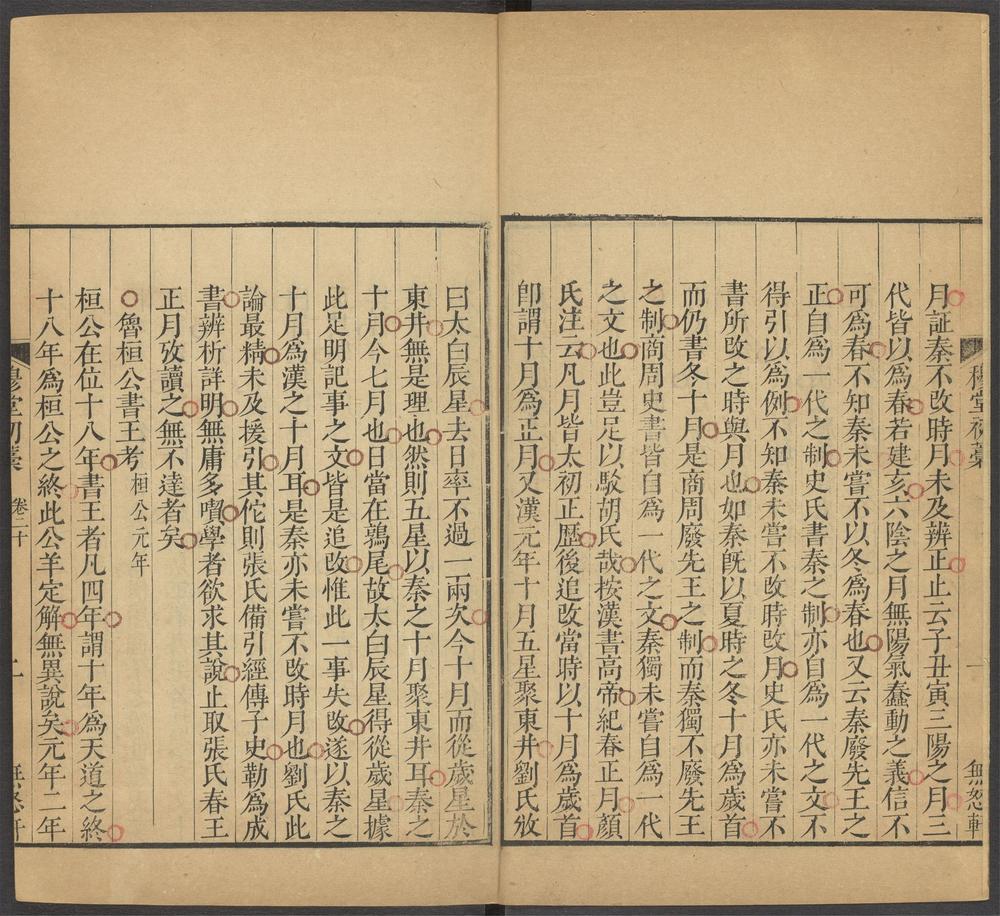 月証秦不改時月未及辨正止云子丑寅三陽之月三
代皆以爲春若建亥六陰之月無陽氣蠢動之義信不
可爲春不知秦未嘗不以冬爲春也又云秦廢先王之
正自爲一代之制史氏書秦之制亦自爲一代之文不
得引以爲例不知秦未嘗不改時改月史氏亦未嘗不
書所改之時與月也如秦旣以夏時之冬十月爲歲首
而仍書冬十月是商周廢先王之制而秦獨不廢先王
之制商周史書皆自爲一代之文秦獨未嘗自爲一代
之文也此豈足以駁胡氏哉按漢書高帝紀春正月顔
氏注云凡月皆太初正歷後追改當時以十月爲歲首
卽謂十月爲正月又漢元年十月五星聚東井劉氏攽
曰太白辰星去日率不過一兩次今十月而從歲星於
東井無是理也然則五星以秦之十月聚東井耳秦之
十月今七月也日當在鶉尾故太白辰星得從歲星據
此足明記事之文皆是追改惟此一事失改遂以秦之
十月爲漢之十月耳是秦亦未嘗不改時月也劉氏此
論最精未及援引其佗則張氏備引經傳子史勒爲成
書辨析詳明無庸多嘳學者欲求其說止取張氏春王
正月攷讀之無不達者矣
魯桓公書王考 桓公元年
桓公在位十八年書王者凡四年謂十年爲天道之終
十八年爲桓公之終此公羊定解無異說矣元年二年
卷二十
二